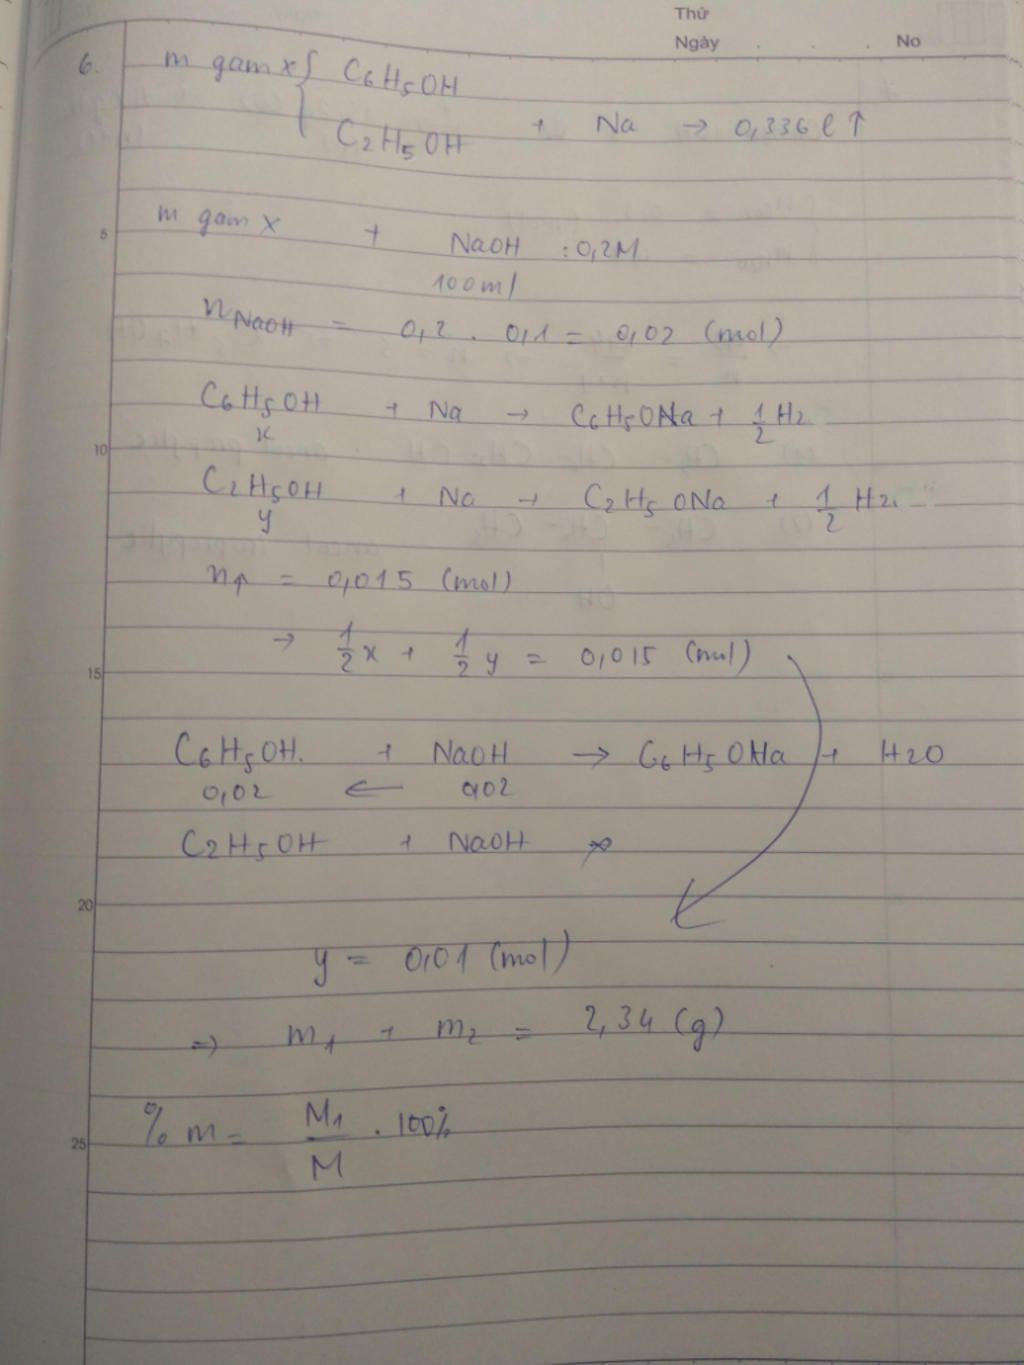 Thứ
Ngày . . . No
6. m gam X { C6H5OH
C2H5OH + Na → 0,336 l ↑
m gam X + NaOH : 0,2M
5
100ml
nNaOH = 0,2 . 0,1 = 0,02 (mol)
C6H5OH + Na → C6H5ONa + 1/2 H2
x
10
C2H5OH + Na → C2H5ONa + 1/2 H2
y
n↑ = 0,015 (mol)
→ 1/2 x + 1/2 y = 0,015 (mol)
15
C6H5OH + NaOH → C6H5ONa + H2O
0,02 ← 0,02
C2H5OH + NaOH
20
y = 0,01 (mol)
⇒ m1 + m2 = 2,34 (g)
% m = M1/M . 100%
25